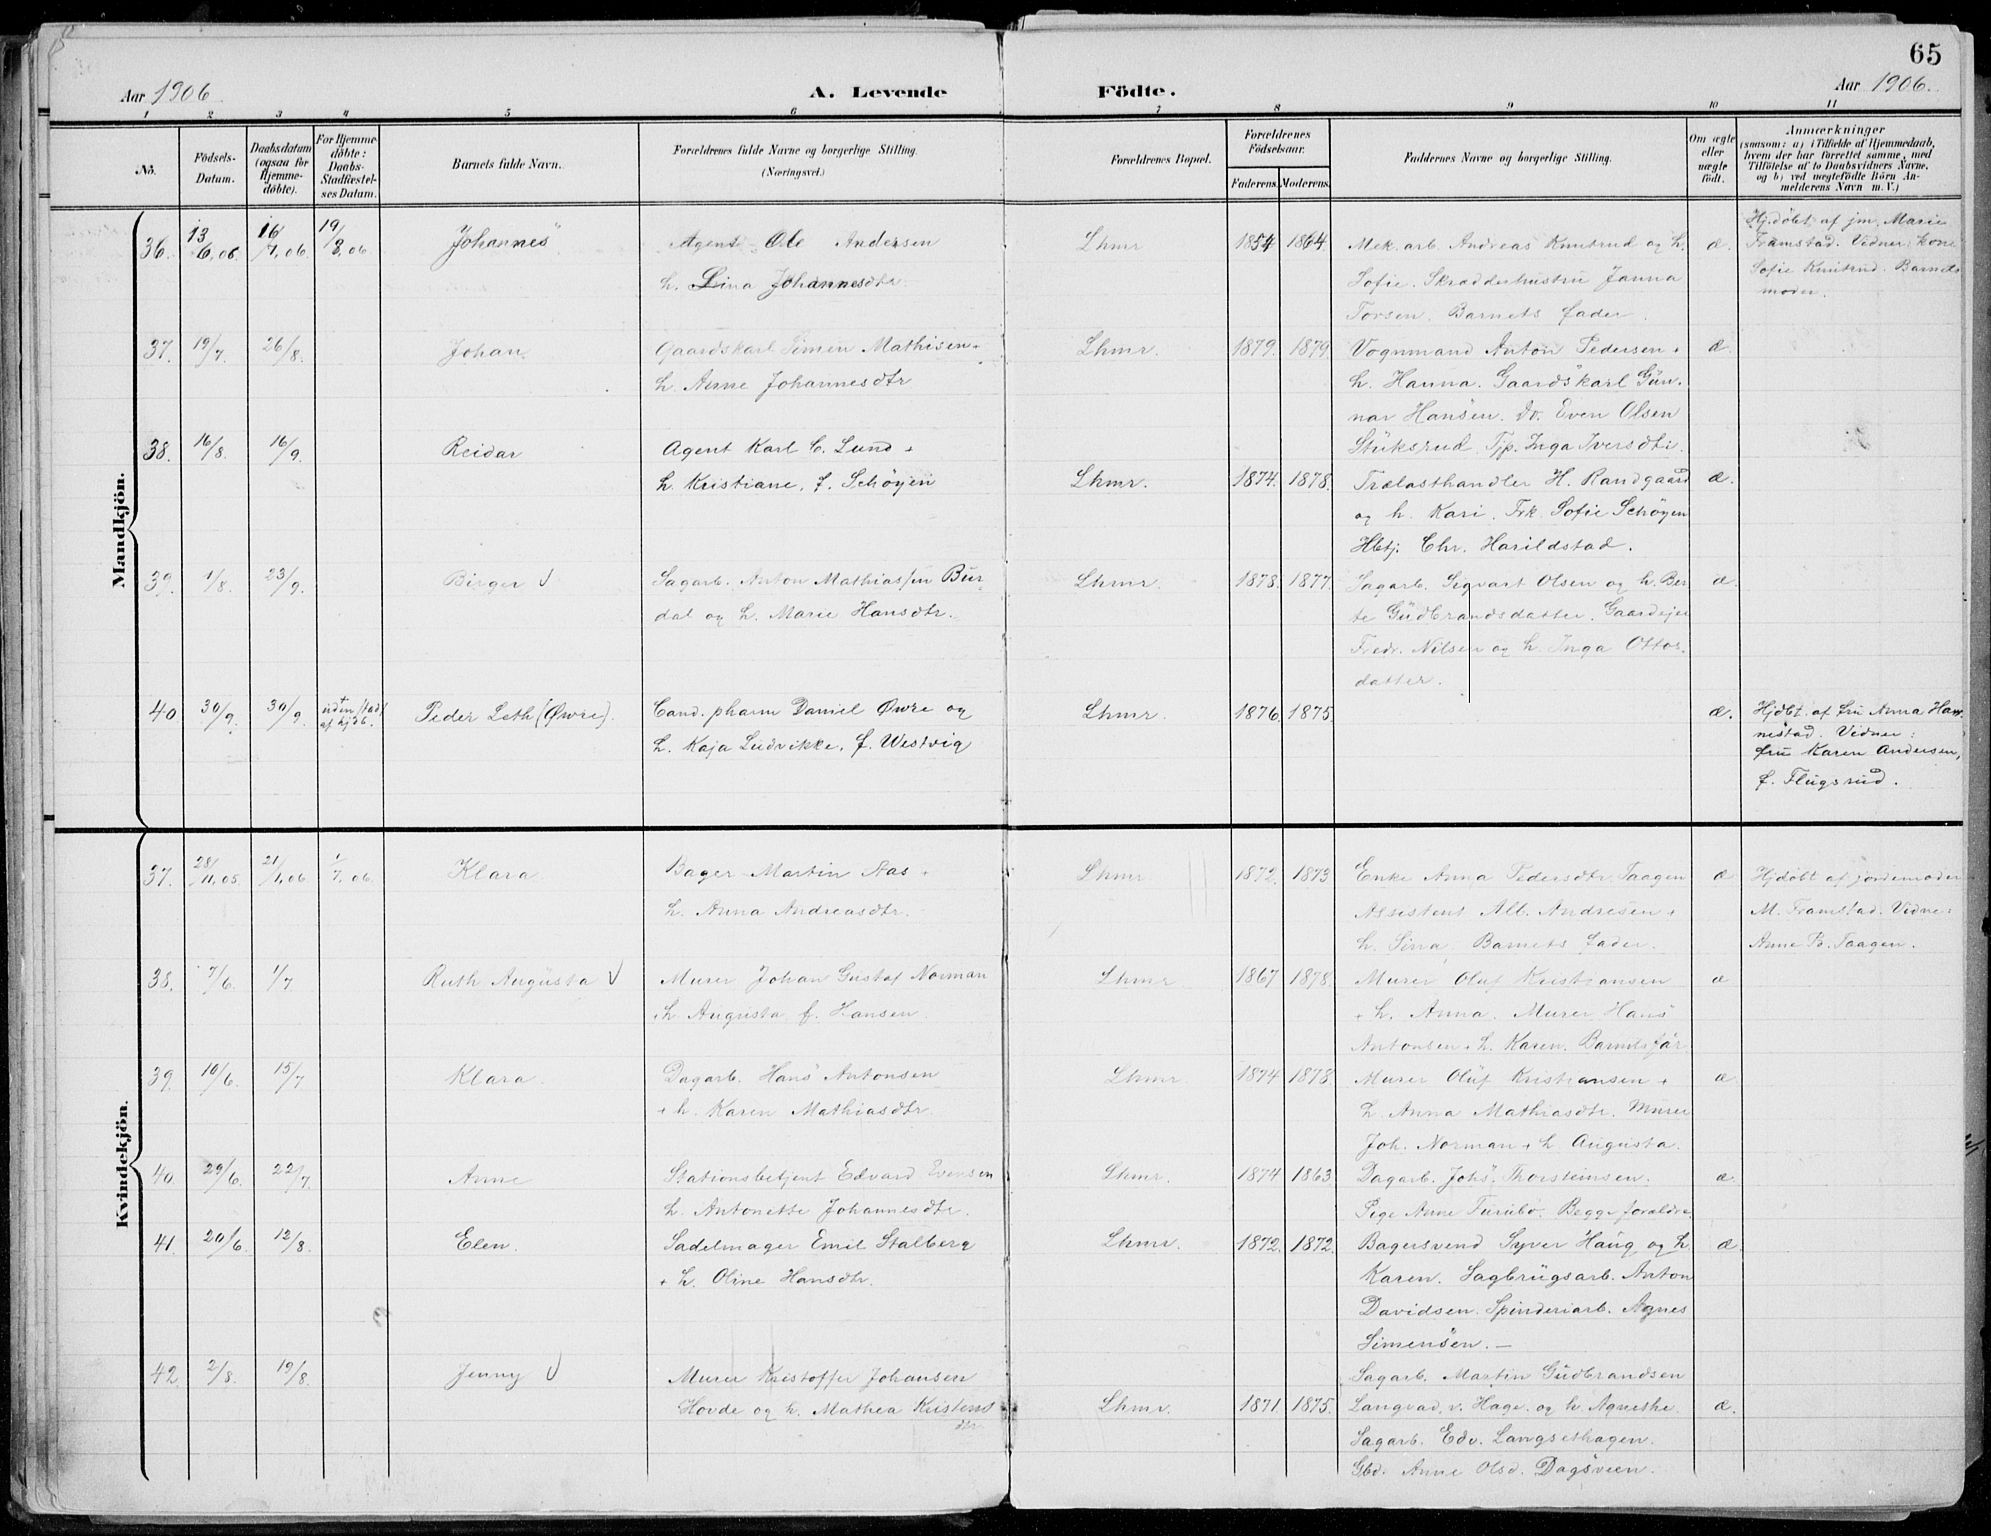 65
Aar 1906
A. Levende
Födte.
Aar 1906.
1 2 3 4 5 6 7 8 9 10 11
No.
Födsels-
Datum.
Daabsdatum
(ogsaa for
Hjemme-
döbte).
For Hjemme-
döbte:
Daabs-
Stadfæstel-
ses Datum.
Barnets fulde Navn.
Forældrenes fulde Navne og borgerlige Stilling.
(Næringsvei.)
Forældrenes Bopæl.
Forældrenes
Födselsaar.
Faderens. Moderens.
Faddernes Navne og borgerlige Stilling.
Om ægte
eller
uægte
födt.
Anmærkninger
(saasom: a) i Tilfælde af Hjemmedaab,
hvem der har forrettet samme, med
Tilföielse af to Daabsvidners Navne,
og b) ved uægtefödte Börn An-
melderens Navn m. V.)
Mandkjön.
36. 13/6, 06. 16/7, 06 19/8, 06 Johannes Agent Ole Andersen
h. Lina Johannesdtr.
Lhmr 1854 1864. Mek. arb. Andreas Knutrud og h.
Sofie. Skrædderhustru Janna
Torsen. Barnets fader.
æ.
Hjdöbt af jm. Marie
Framstad. Vidner: kone
Sofie Knutrud. Barnets
moder.
37. 19/7. 26/8. Johan. Gaardskarl Simen Mathisen +
h. Anne Johannesdtr
Lhmr. 1879. 1879. Vognmand Anton Pedersen +
h. Hanna. Gaardskarl Gun-
nar Hansen. Do. Even Olsen
Stuksrud. Tjp. Inga Iversdtr.
æ.
38. 16/8. 16/9. Reidar Agent Karl C. Lund +
h. Kristiane, f. Schöyen
Lhmr. 1874. 1878. Trælasthandler H. Randgaard
og h. Kari. Frk. Sofie Schöyen
Hbtj. Chr. Harildstad.
æ.
39. 1/8. 23/9. Birger V Sagarb. Anton Mathiassen Bur-
dal og h. Marie Hansdtr.
Lhmr. 1878. 1877. Sagarb. Sigvart Olsen og h. Ber-
te Gudbrandsdatter. Gaardejer
Fredr. Nilsen og h. Inga Ottos-
datter.
æ.
40 30/9. 30/9. uden stadf.
af hjdb. Peder Leth (Øwre). Cand. pharm Daniel Øwre og
h. Kaja Ludvikke, f. Westvig
Lhmr. 1876. 1875. æ.
Hjdbt. af fru Anna Ham-
nestad. Vidner:
fru Karen Andersen,
f. Flugsrud.
Kvindekjön.
37. 28/11, 05 21/1, 06 1/7, 06. Klara. Bager Martin Aas +
h. Anna Andreasdtr.
Lhmr. 1872. 1873 Enke Anna Pedersdtr. Taagen
Assistent Alb. Andresen +
h. Sina. Barnets fader.
æ
Hjdöbt af jordemoder
M. Framstad. Vidne:
Anne B. Taagen.
38. 7/6. 1/7 Ruth Augusta V Murer Johan Gustaf Norman
+ h. Augusta f. Hansen.
Lhmr 1867 1878. Murer Oluf Kristiansen
+ h. Anna. Murer Hans
Antonsen + h. Karen. Barnets far
æ
39. 10/6. 15/7 Klara. Dagarb. Hans Antonsen
+ h. Karen Mathiasdtr.
Lhmr. 1874 1878. Murer Oluf Kristiansen +
h. Anna Mathiasdtr. Murer
Joh. Norman + h. Augusta.
æ.
40 29/6. 22/7. Anne Stationsbetjent Edvard Evensen
h. Antonette Johannesdtr.
Lhmr. 1874 1863. Dagarb. Johs. Thorsteinsen.
Pige Anne Furubo. Begge forældre.
æ.
41. 20/6. 12/8. Elen. Sadelmager Emil Stalberg
+ h. Oline Hansdtr.
Lhmr. 1872. 1872. Bagersvend Syver Haug og h.
Karen. Sagbrugsarb. Anton
Davidsen. Spinderiarb. Agnes
Simensen. —
æ.
42 2/8. 19/8. Jenny V Murer Kristoffer Johansen
Hovde og h. Mathea Kristens
dtr.
Lhmr. 1871 1875. Sagarb. Martin Gudbrandsen
Langvad v. Hage. og h. Agnethe.
Sagarb. Edv. Langsethagen.
Gbd. Anne Olsd. Dagsveen.
æ.